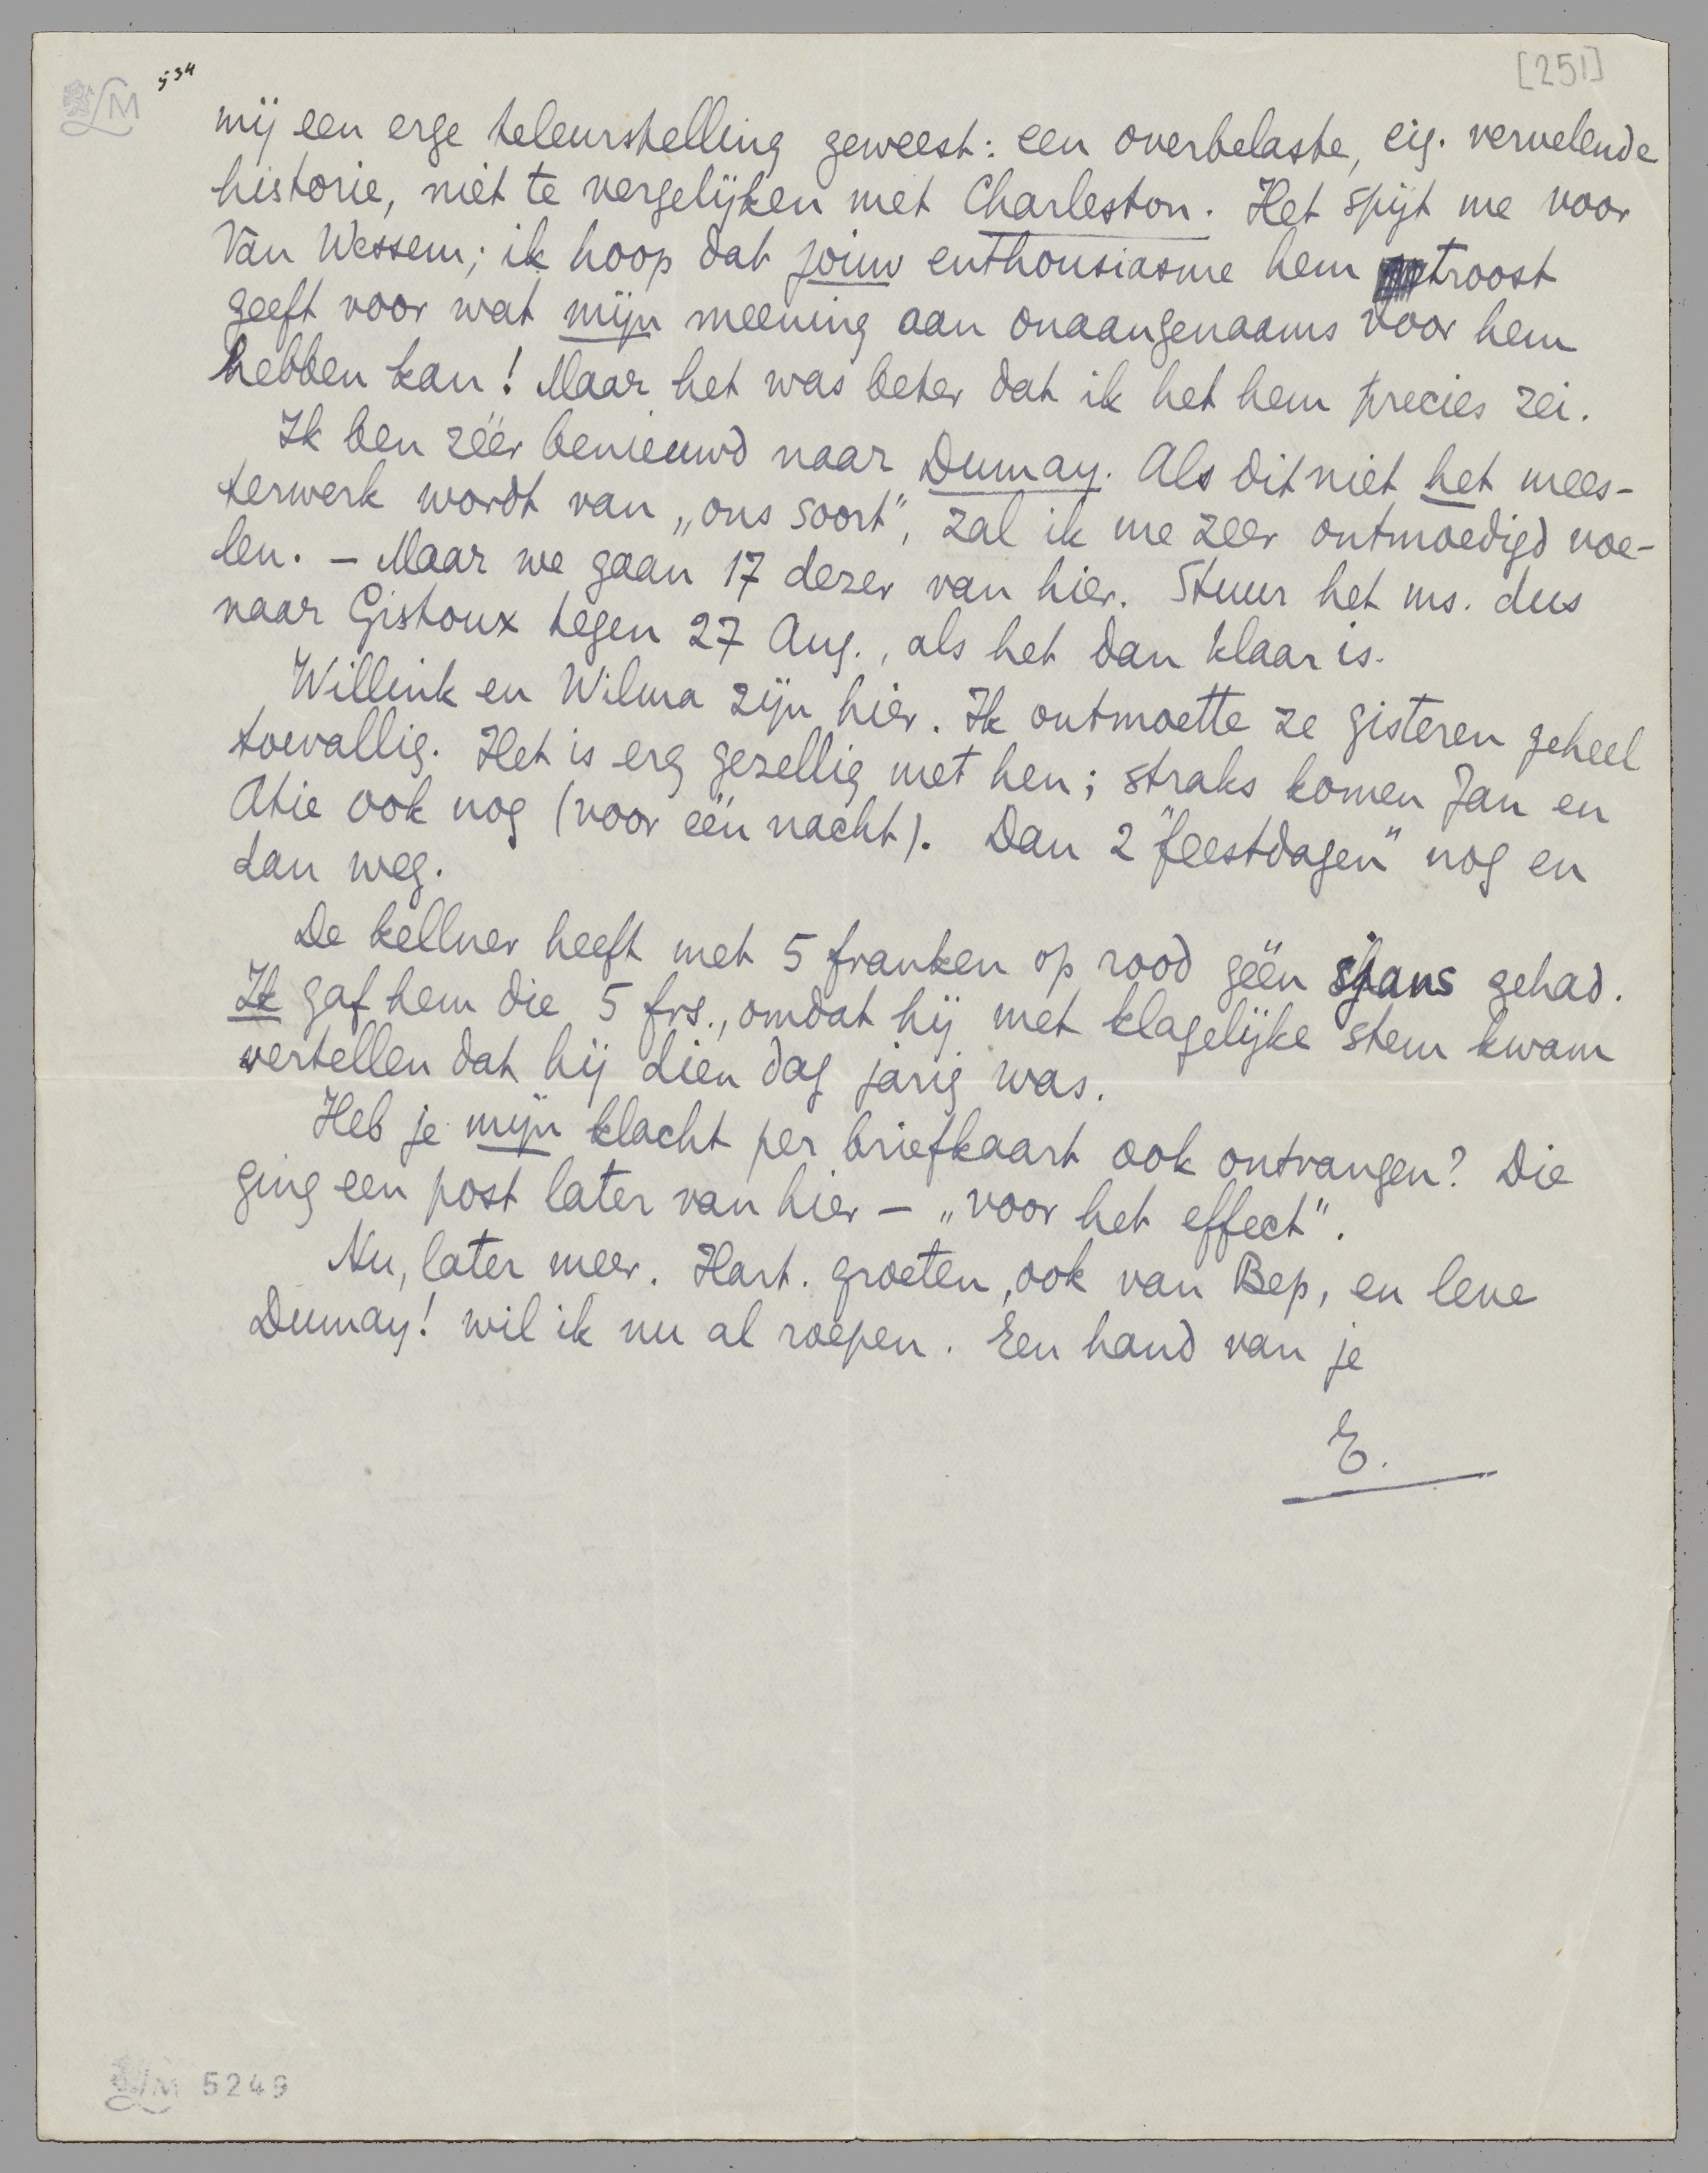 534
[251]
LM
mij een erge teleurstelling geweest: een overbelaste, eig. vervelende
historie, niet te vergelijken met Charleston. Het spijt me voor
Van Wessem; ik hoop dat jouw enthousiasme hem troost
geeft voor wat mijn meening aan onaangenaams voor hem
hebben kan! Maar het was beter dat ik het hem precies zei.
Ik ben zéér benieuwd naar Dumay. Als dit niet het mees-
terwerk wordt van „ons soort", zal ik me zeer ontmoedigd voe-
len. – Maar we gaan 17 dezer van hier. Stuur het ms. dus
naar Gistoux tegen 27 Aug., als het dan klaar is.
Willink en Wilma zijn hier. Ik ontmoette ze gisteren geheel
toevallig. Het is erg gezellig met hen; straks komen Jan en
Atie ook nog (voor één nacht). Dan 2 "feestdagen" nog en
dan weg.
De kellner heeft met 5 franken op rood géén sjans gehad.
Ik gaf hem die 5 frs., omdat hij met klagelijke stem kwam
vertellen dat hij dien dag jarig was.
Heb je mijn klacht per briefkaart ook ontvangen? Die
ging een post later van hier – „voor het effect".
Nu, later meer. Hart. groeten, ook van Bep, en leve
Dumay! wil ik nu al roepen. Een hand van je
E.
LM 5249